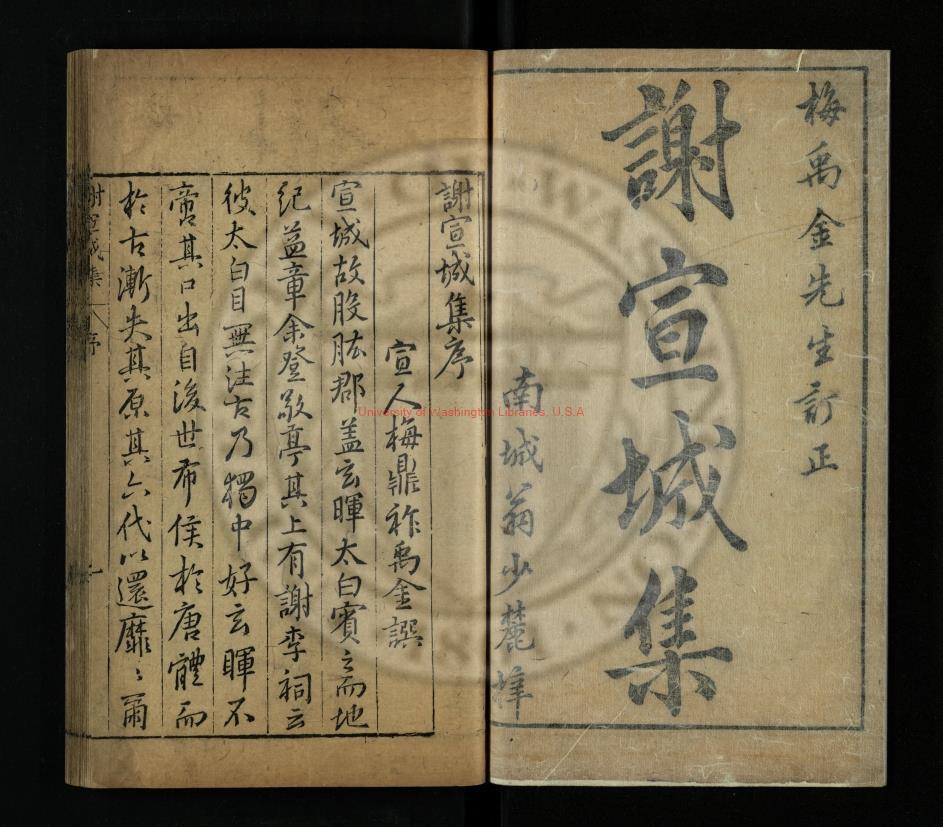 梅禹金先生訂正
謝宣城集
南城翁少麓梓
謝宣城集序
宣人梅鼎祚禹金譔
宣城故股肱郡蓋玄暉太白賓之而地
紀益章余登敬亭其上有謝李祠云
彼太白目無往古乃獨中好玄暉不
啻其口出自後世希侯於唐體而
於古漸失其原其六代以還靡〻爾
謝宣城集 序 一
University of Washington Libraries, U.S.A